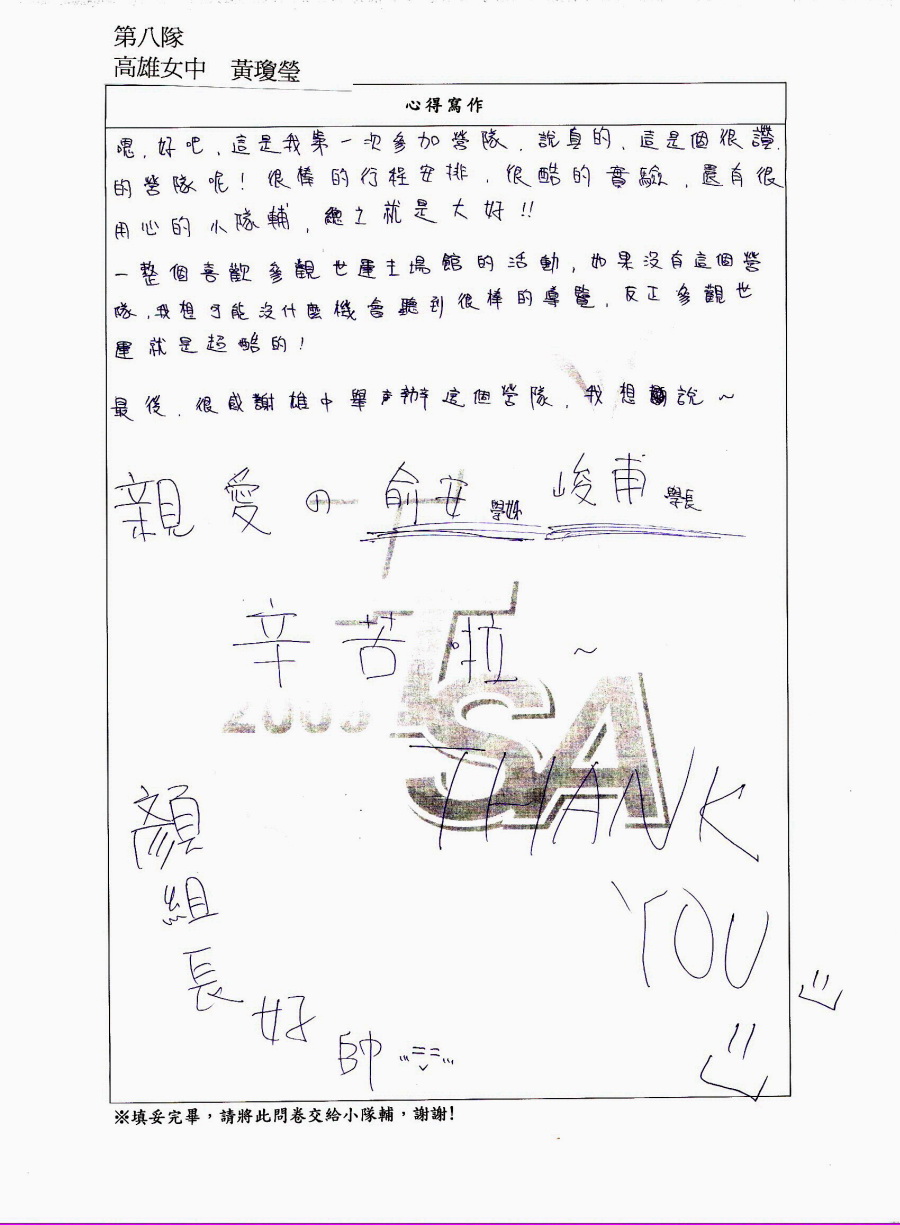 第八隊
高雄女中 黃瓊瑩
心得寫作
嗯,好吧,這是我第一次參加營隊,說真的,這是個很讚
的營隊呢!很棒的行程安排,很酷的實驗,還有很
用心的小隊輔,總之就是大好!!
一整個喜歡參觀世運主場館的活動,如果沒有這個營
隊,我想可能沒什麼機會聽到很棒的導覽,反正參觀世
運就是超酷的!
最後,很感謝雄中舉辦這個營隊,我想說~
親愛の俞安學姊 峻甫學長
辛苦啦~
2009 TSA
THANK
YOU
顏組長好帥
※填妥完畢,請將此問卷交給小隊輔,謝謝!